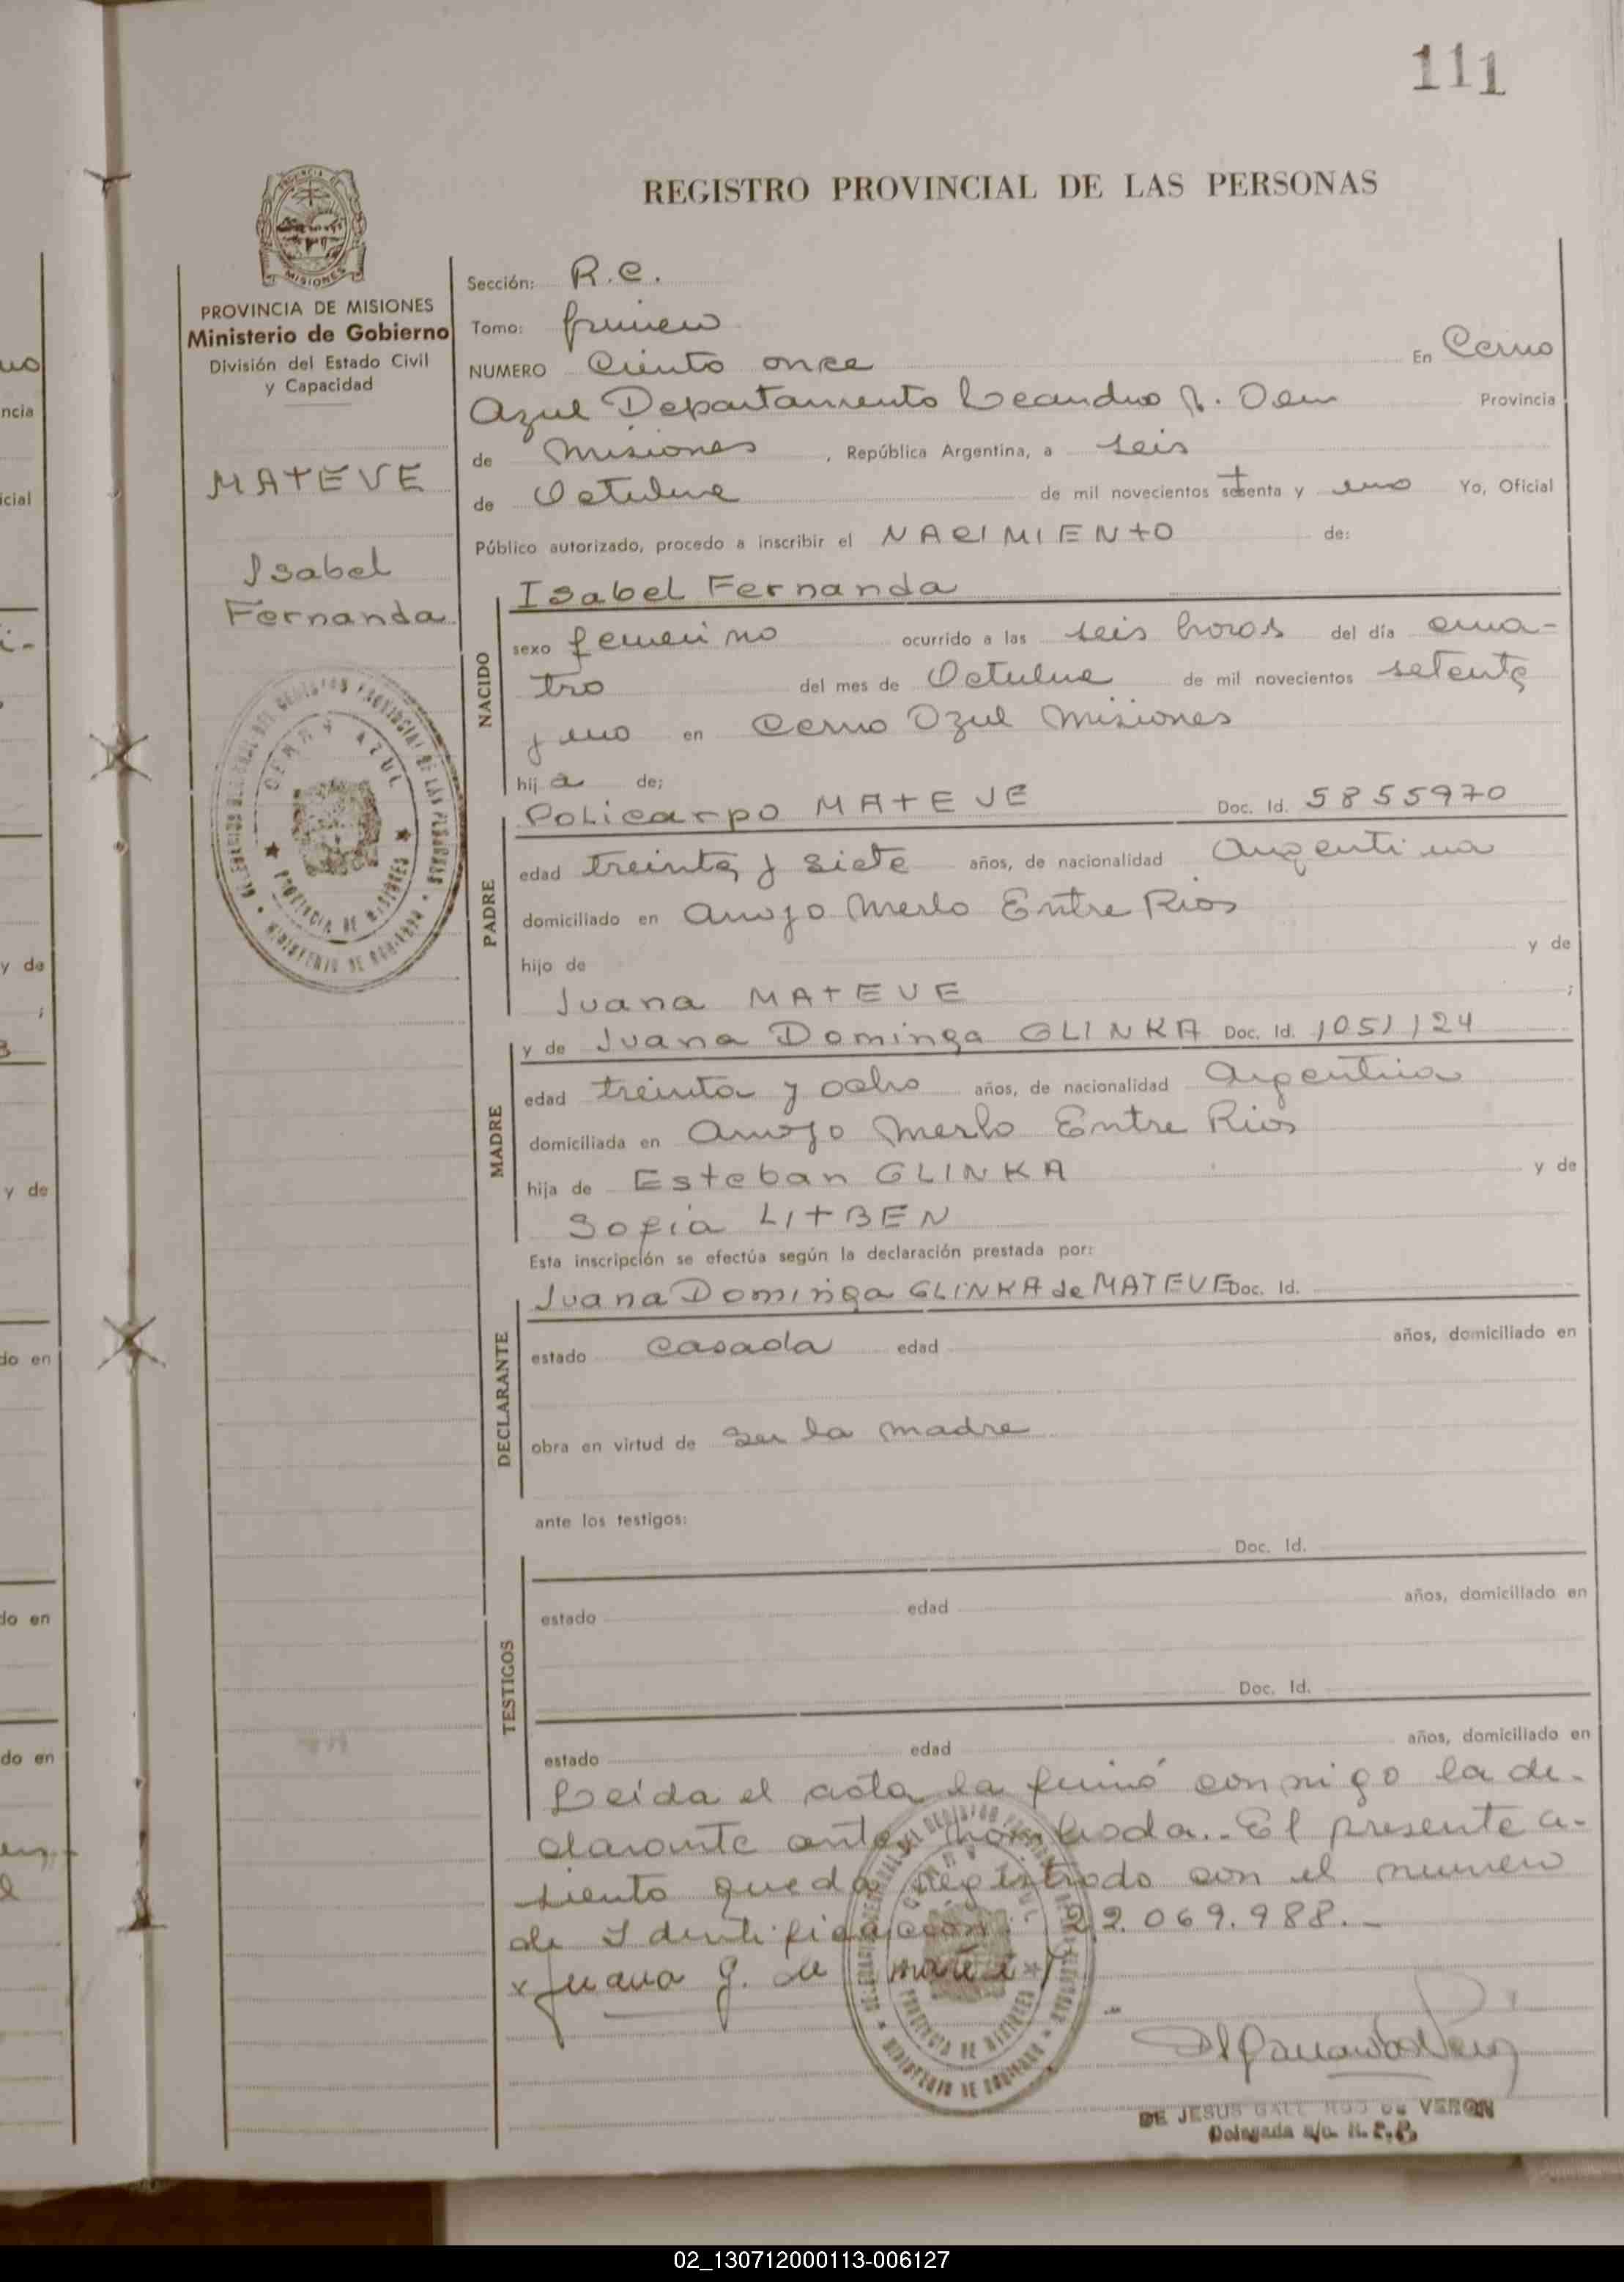 111
REGISTRO PROVINCIAL DE LAS PERSONAS
MISIONES
PROVINCIA DE MISIONES
Ministerio de Gobierno
División del Estado Civil
y Capacidad
MATEVE
Isabel
Fernanda
CERRO AZUL
PROVINCIA DE MISIONES
Sección: R.C.
Tomo: primero
NUMERO Ciento once En Cerro
Azul Departamento Leandro N. Alem Provincia
de Misiones, República Argentina, a seis
de Octubre de mil novecientos setenta y uno Yo, Oficial
Público autorizado, procedo a inscribir el NACIMIENTO de:
NACIDO
Isabel Fernanda
sexo femenino ocurrido a las seis horas del día cua-
tro del mes de Octubre de mil novecientos setenta
y uno en Cerro Azul Misiones
hij a de;
PADRE
Policarpo MATEVE Doc. Id. 5855970
edad treinta y siete años, de nacionalidad Argentina
domiciliado en Arroyo Merlo Entre Rios
hijo de y de
Juana MATEVE ;
MADRE
y de Juana Dominga GLINKA Doc. Id. 1051124
edad treinta y ocho años, de nacionalidad Argentina
domiciliada en Arroyo Merlo Entre Rios
hija de Esteban GLINKA y de
Sofia LITBEN
Esta inscripción se efectúa según la declaración prestada por:
DECLARANTE
Juana Dominga GLINKA de MATEVE Doc. Id.
estado casada edad años, domiciliado en
obra en virtud de ser la madre
ante los testigos:
TESTIGOS
Doc. Id.
estado edad años, domiciliado en
Doc. Id.
estado edad años, domiciliado en
Leída el acta la firmó conmigo la de-
clarante ante nombrada.. El presente a-
siento queda registrado con el numero
de Identificación: 22.069.988.-
x Juana G. de
DE JESUS VERON
Delegada a/c. R.P.P.
02_130712000113-006127